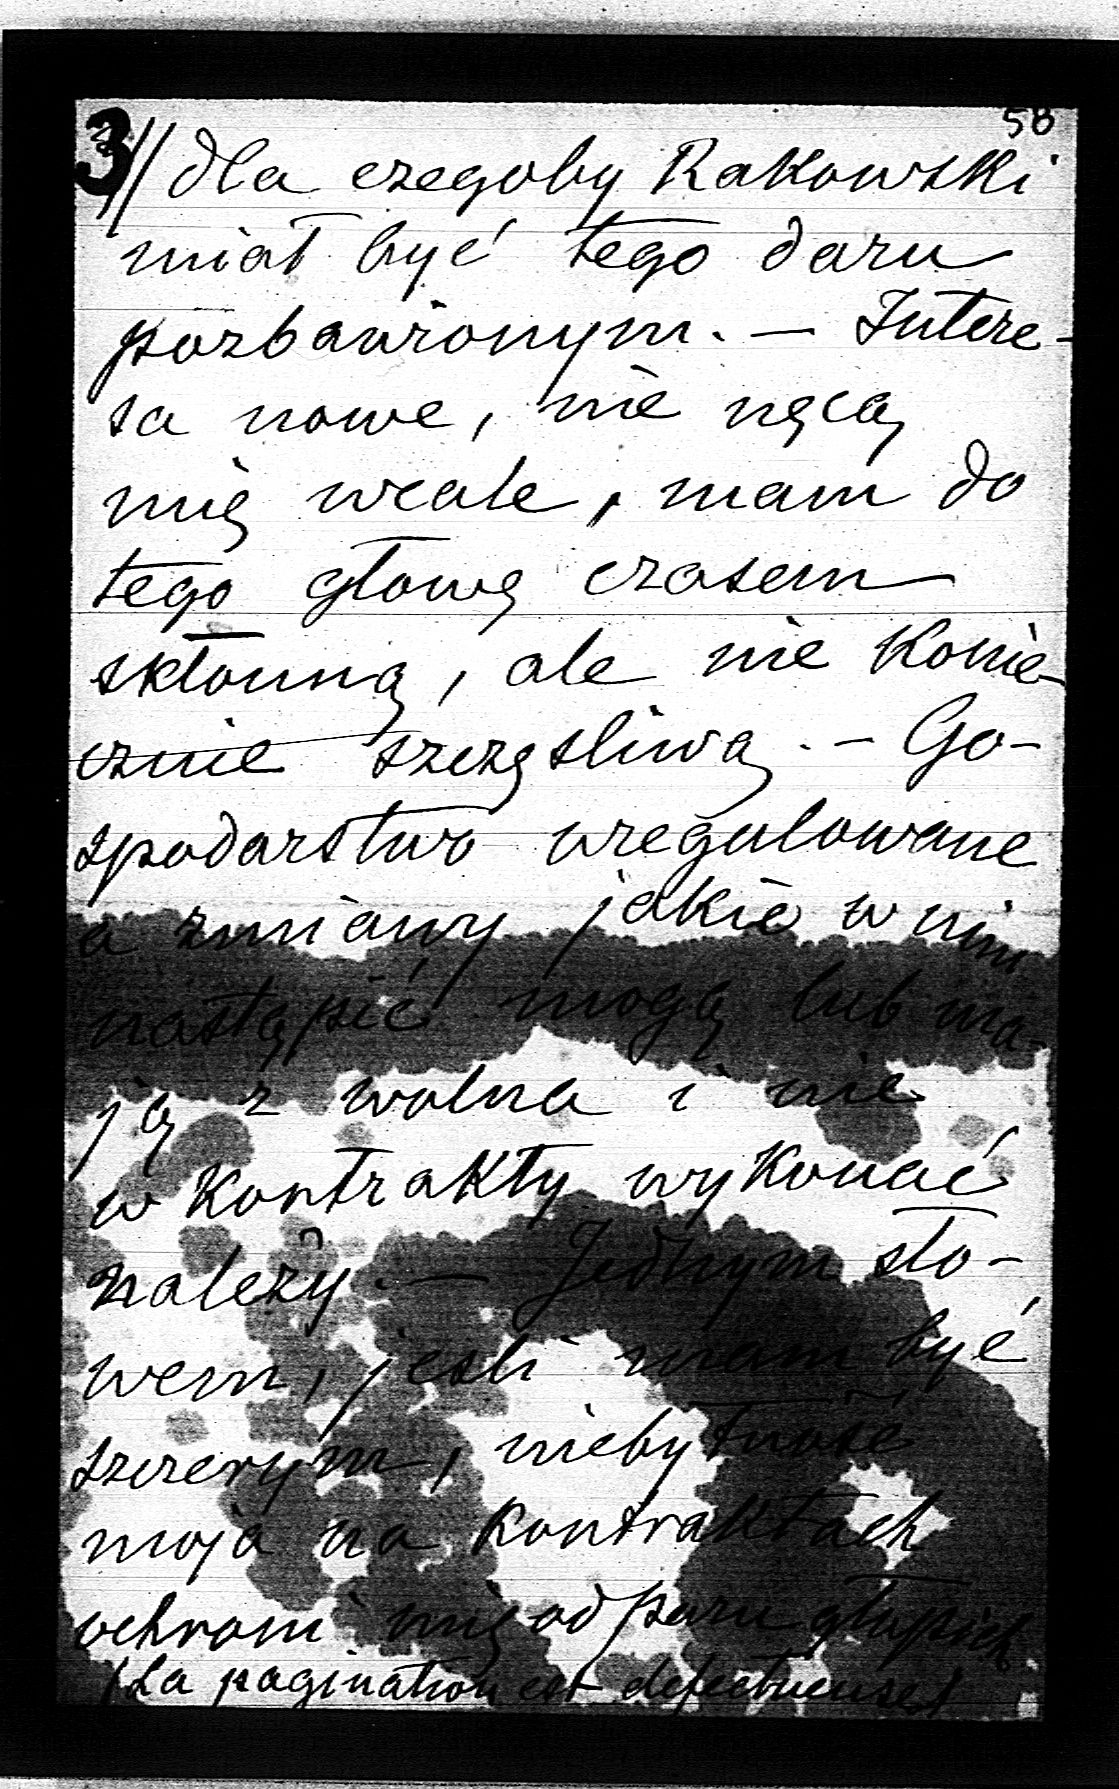 58
3// dla czegoby Rakowski
miał być tego daru
pozbawionym. — Intere-
sa nowe, nie nęcą
mię wcale, mam do
tego głowę czasem
skłonną, ale nie konie-
cznie szczęsliwą. — Go-
spodarstwo uregulowane
a zmiany jakie w nim
nastąpić mogą lub ma-
ją z wolna i nie
w kontrakty wykonać
należy. — Jednym sło-
wem, jesli mam być
szczerym, niebytność
moja na kontraktach
ochroni mię od paru głupich
(La pagination est defectueuse)